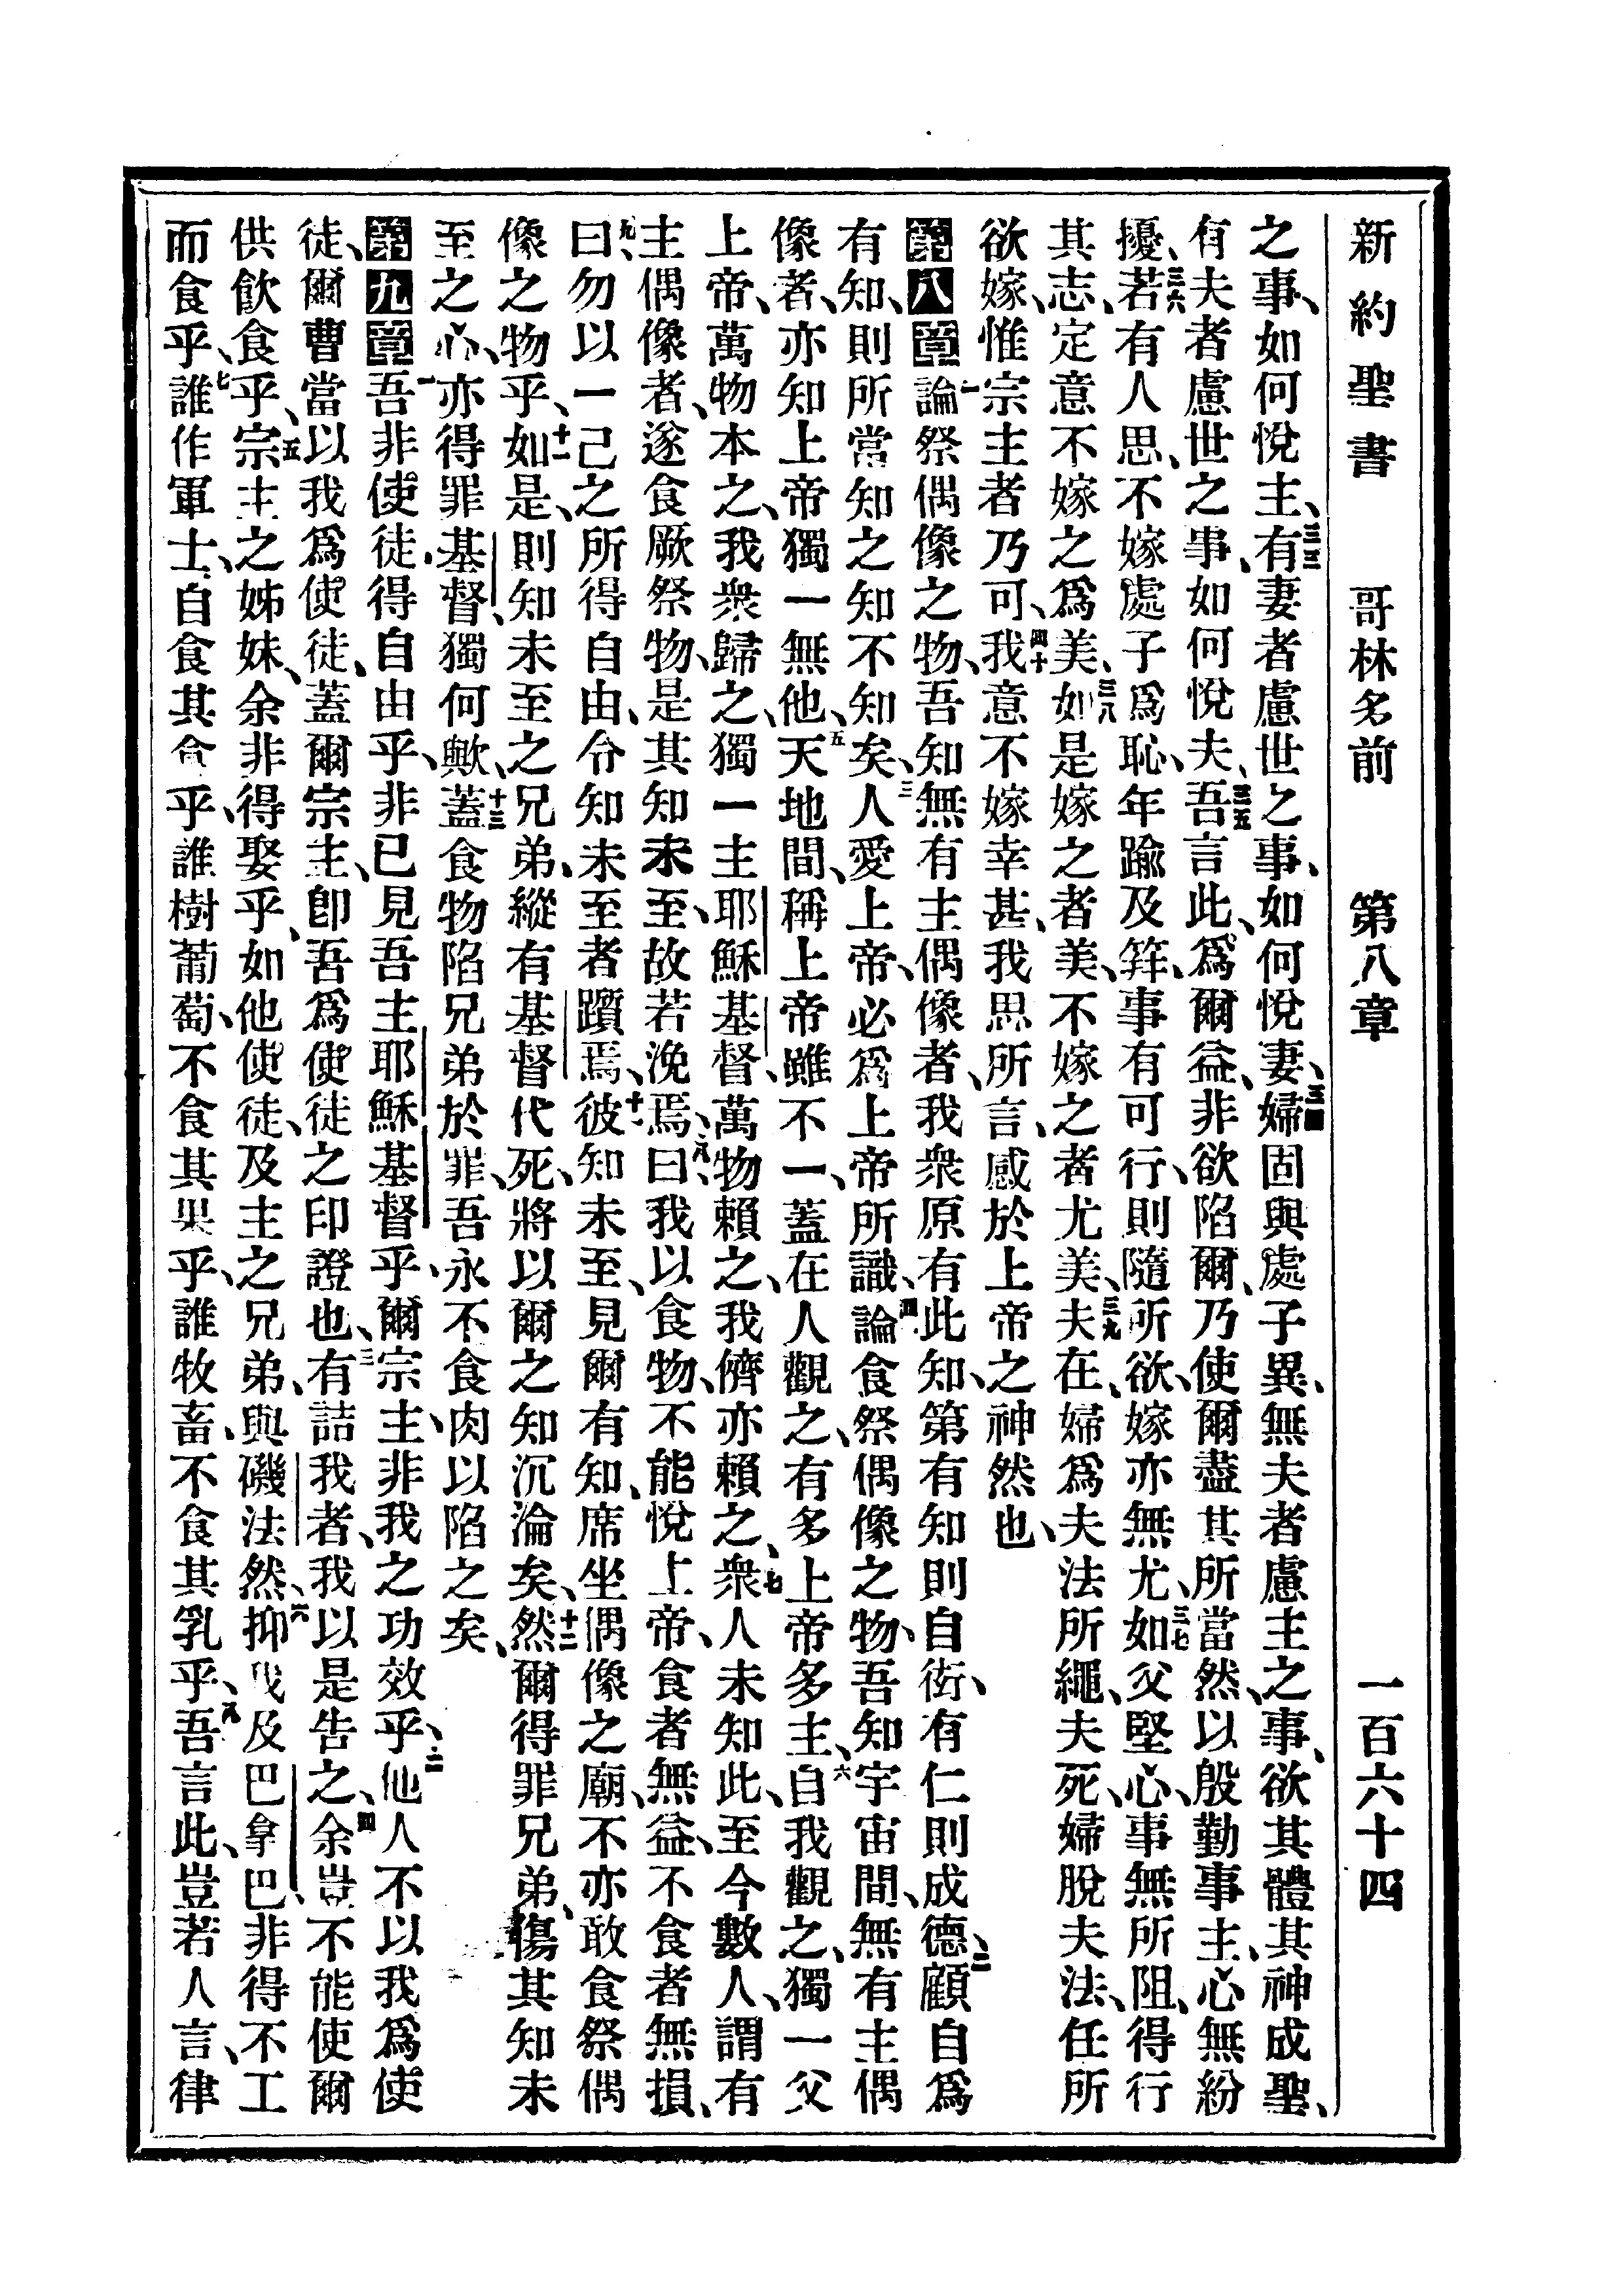 新約聖書 哥林多前 第八章 一百六十四
之事、如何悅主、三三有妻者慮世之事、如何悅妻、三四婦固與處子異、無夫者慮主之事、欲其體其神成聖、
有夫者慮世之事、如何悅夫、三五吾言此、爲爾益、非欲陷爾、乃使爾盡其所當然、以殷勤事主、心無紛
擾、三六若有人思、不嫁處子爲恥、年踰及笄、事有可行、則隨所欲、嫁亦無尤、三七如父堅心、事無所阻、得行
其志、定意不嫁之爲美、三八如是嫁之者美、不嫁之者尤美、三九夫在、婦爲夫法所繩、夫死、婦脫夫法、任所
欲嫁、惟宗主者乃可、四十我意不嫁幸甚、我思所言、感於上帝之神然也、
第八章一論祭偶像之物、吾知無有主偶像者、我衆原有此知、第有知則自衒、有仁則成德、二顧自爲
有知、則所當知之知不知矣、三人愛上帝、必爲上帝所識、四論食祭偶像之物、吾知宇宙間、無有主偶
像者、亦知上帝獨一無他、五天地間、稱上帝雖不一、蓋在人觀之、有多上帝多主、六自我觀之、獨一父
上帝、萬物本之、我衆歸之、獨一主耶穌基督、萬物賴之、我儕亦賴之、七衆人未知此、至今數人、謂有
主偶像者、遂食厥祭物、是其知未至、故若浼焉、八曰我以食物、不能悅上帝、食者無益、不食者無損、
九曰勿以一己之所得自由、令知未至者躓焉、十彼知未至、見爾有知、席坐偶像之廟、不亦敢食祭偶
像之物乎、十一如是、則知未至之兄弟、縱有基督代死、將以爾之知沉淪矣、十二然爾得罪兄弟、傷其知未
至之心、亦得罪基督、獨何歟、十三蓋食物陷兄弟於罪、吾永不食肉以陷之矣、
第九章一吾非使徒、得自由乎、非已見吾主耶穌基督乎、爾宗主、非我之功效乎、二他人不以我爲使
徒、爾曹當以我爲使徒、蓋爾宗主、卽吾爲使徒之印證也、三有詰我者、我以是告之、四余豈不能使爾
供飲食乎、五宗主之姊妹、余非得娶乎、如他使徒、及主之兄弟、與磯法然、六抑我及巴拿巴、非得不工
而食乎、七誰作軍士、自食其食乎、誰樹葡萄、不食其果乎、誰牧畜、不食其乳乎、八吾言此、豈若人言、律